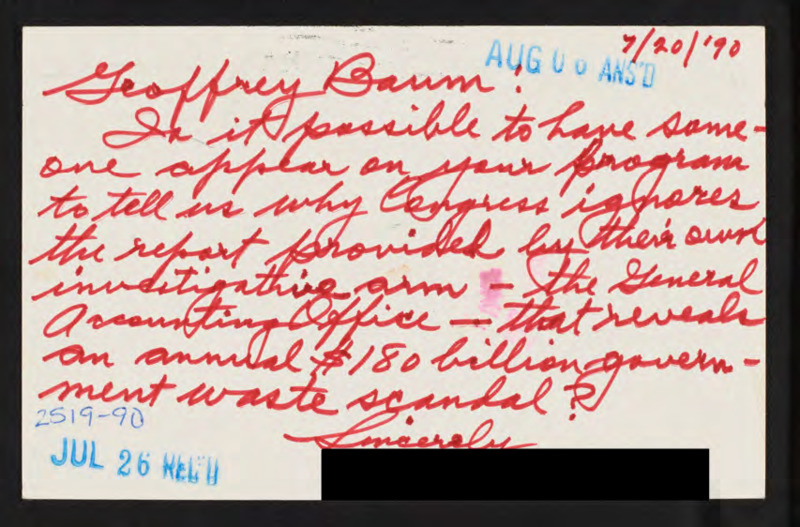 7/20/'90
AUG 0 6 ANS'D
Geoffrey Baum:
Is it possible to have some-
one appear on your program
to tell us why Congress ignores
the report provided by their own
investigative arm - the General
Accounting Office - that reveals
an annual $180 billion govern-
ment waste scandal?
2519-90
Sincerely
JUL 26 REC'D